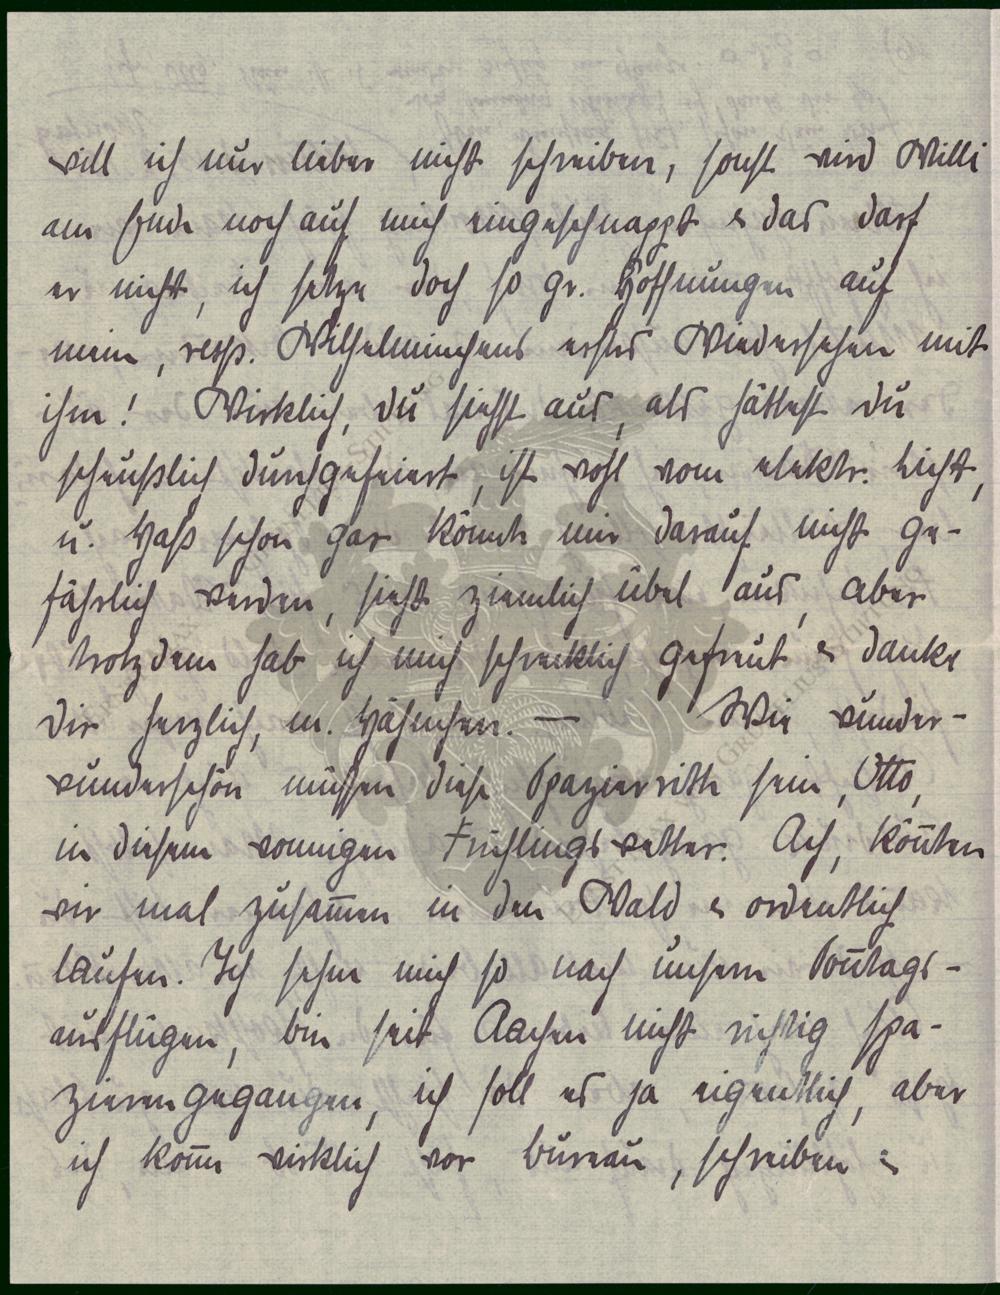 will ich nur lieber nicht schreiben, sonst wird Willi
am Ende noch auf mich eingeschnappt & das darf
er nicht, ich setze doch so gr. Hoffnungen auf
mein, resp. Wilhelminchens erstes Wiedersehen mit
ihm! Wirklich, du siehst aus, als hättest du
scheußlich durchgefeiert, ist wohl vom elektr. Licht,
u. Haß schon gar könnte mir darauf nicht ge-
fährlich werden, sieht ziemlich übel aus, aber
trotzdem hab ich mich schrecklich gefreut & danke
dir herzlich, m. Hähnchen. — Wie wunder-
wunderschön müssen diese Spazierritte sein, Otto,
in diesem wonnigen Frühlingswetter. Ach, kön̅ten
wir mal zusam̅en in den Wald & ordentlich
laufen. Ich sehne mich so nach unsern Son̅tags-
ausflügen, bin seit Aachen nicht richtig spa-
zierengegangen, ich soll es ja eigentlich, aber
ich kom̅ wirklich vor bureau, schreiben &